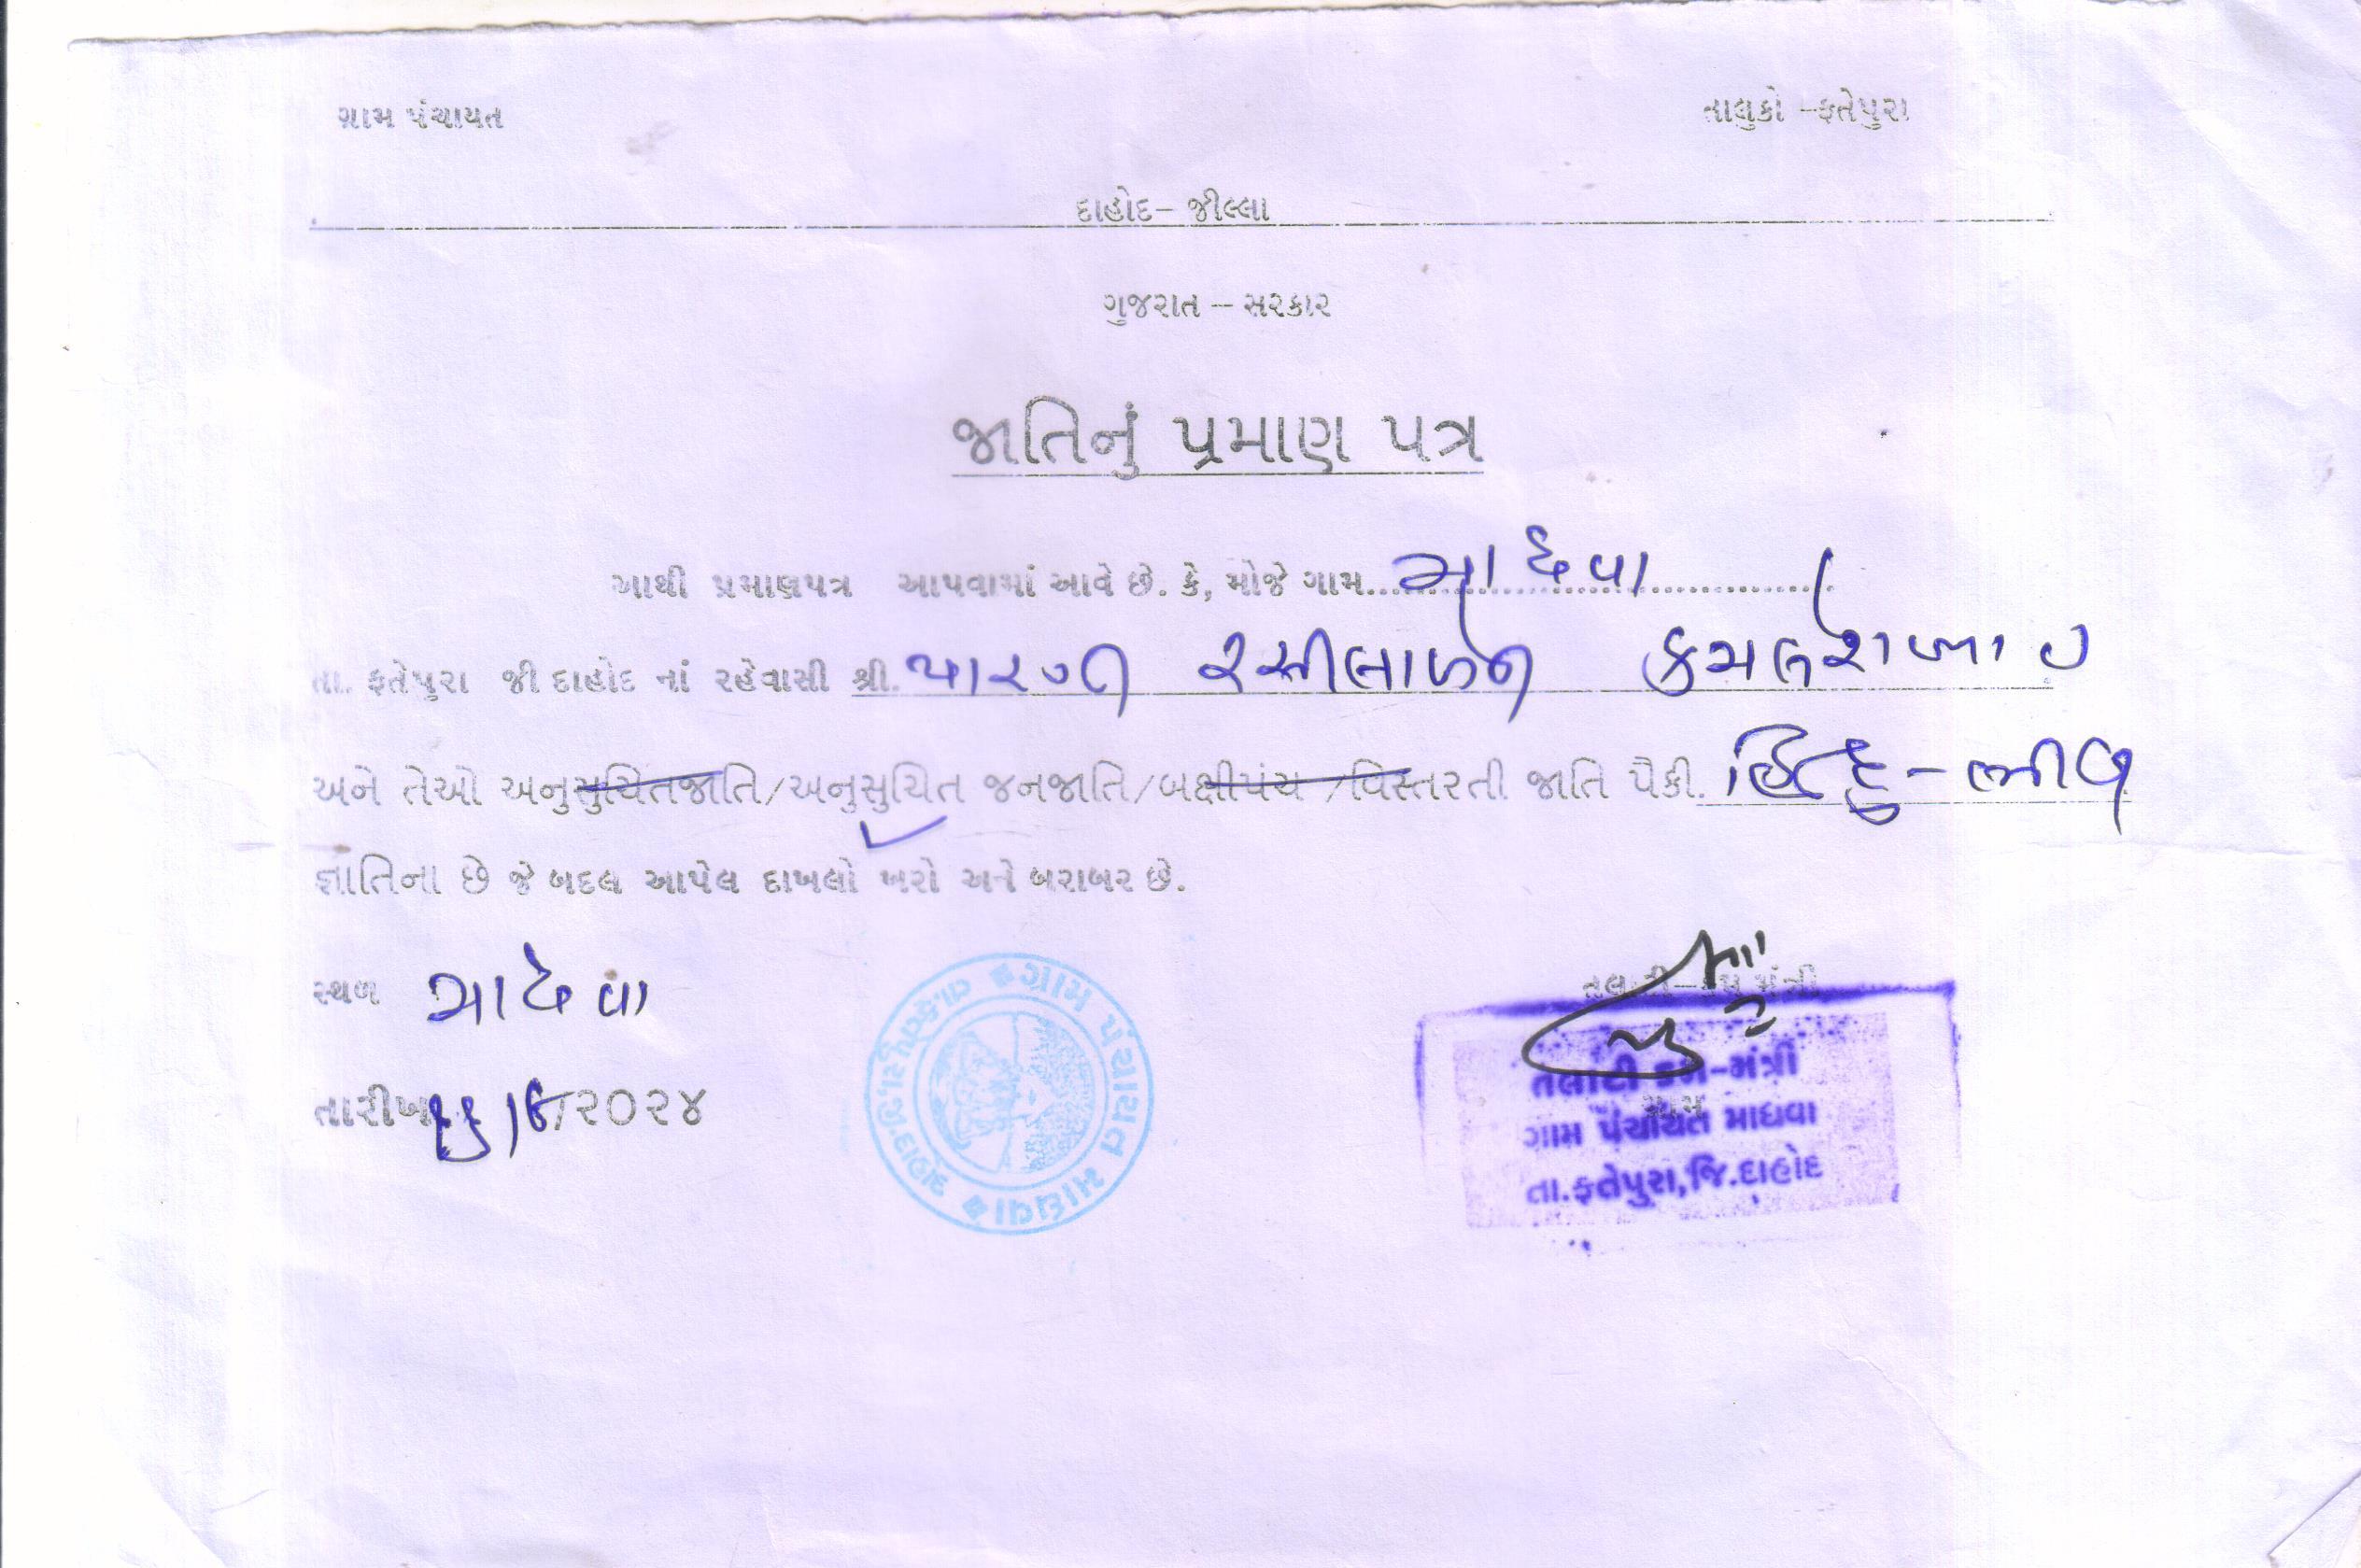 ગ્રામ પંચાયત
તાલુકો –ફતેપુરા
દાહોદ– જીલ્લા
ગુજરાત – સરકાર
જાતિનું પ્રમાણ પત્ર
આથી પ્રમાણપત્ર આપવામાં આવે છે. કે, મોજે ગામ.... માધવા
તા. ફતેપુરા જી દાહોદ નાં રહેવાસી શ્રી. પારગી રસીલાબેન કમલેશભાઇ
અને તેઓ અનુસુચિતજાતિ/અનુસુચિત જનજાતિ/બક્ષીપંચ /વિસ્તરતી જાતિ પૈકી. હિન્દુ-ભીલ
જ્ઞાતિના છે જે બદલ આપેલ દાખલો ખરો અને બરાબર છે.
સ્થળ માધવા
તલાટી–કમ મંત્રી
તારીખ /૨૦૨૪
તલાટી કમ-મંત્રી
ગ્રામ પંચાયત માધવા
તા.ફતેપુરા,જિ.દાહોદ
ગ્રામ પંચાયત માધવા
તા.ફતેપુરા.જી.દાહોદ